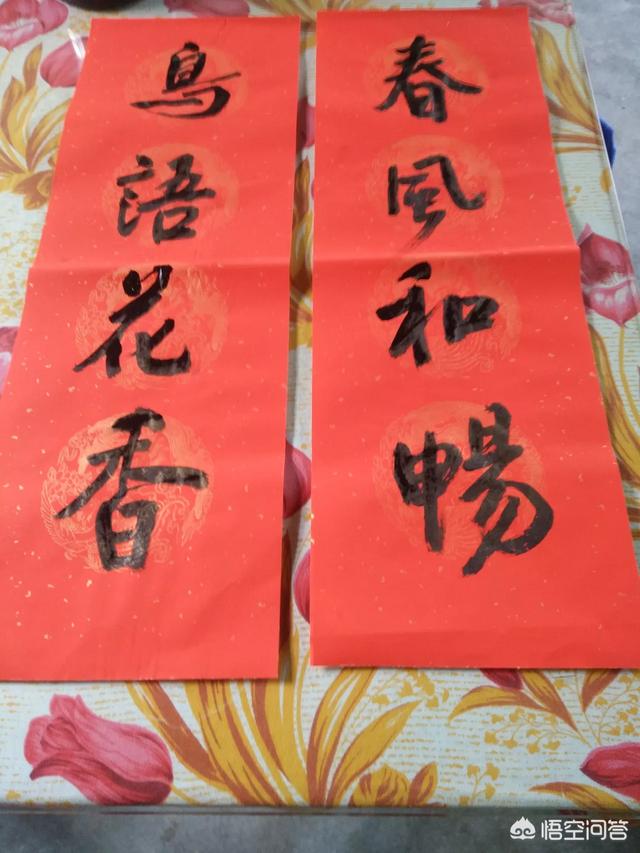 春風和暢
鳥語花香
悟空问答